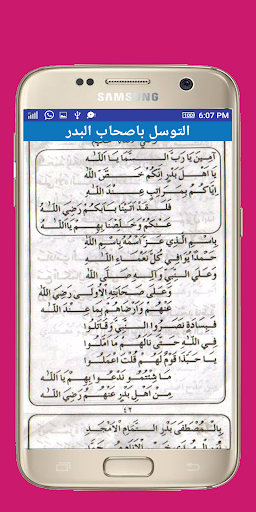 SAMSUNG
6:07 PM
التوسل باصحاب البدر
آمِينَ يَا رَبَّ السَّمَا يَا اَللهُ
يَا اَهْلَ بَدْرٍ اِنَّكُمْ خَصَّ اللهُ
اِيَّاكُمُ بِمَرَاتِبٍ عِنْدَ اللهِ
فَلَقَدْ اَتَانَا بِبَابِكُمْ رَضِيَ اللهُ
عَنْكُمْ وَخَلِّصْنَا بِهِمْ يَا اَللهُ
بِاسْمِ الَّذِي عَزَّ اسْمُهُ بِاسْمِ اللهِ
حَمْدًا يُوَافِي كُلَّ نَعْمَاءِ اللهِ
وَعَلَى النَّبِي وَآلِهِ صَلَّى اللهُ
وَعَلَى صَحَابَتِهِ الْاُولَى رَضِيَ اللهُ
عَنْهُمْ وَاَرْضَاهُمْ بِمَا عِنْدَ اللهِ
فَبِسَادَةٍ نَصَرُوا النَّبِي وَقَاتَلُوا
فِي اللهِ حَتَّى نَالَهُمْ مَا اَمَّلُوا
يَا حَبَّذَا قَوْمٌ لَهُمْ قُلْتَ اعْمَلُوا
مَا شِئْتُمُو نَدْعُوا بِهِمْ يَا اَللهُ
مِنْ اَهْلِ بَدْرٍ عَنْهُمُ رَضِيَ اللهُ
٤٢
بِالْمُصْطَفَى بَدْرِ التَّمَامِ الْاَمْجَدِ